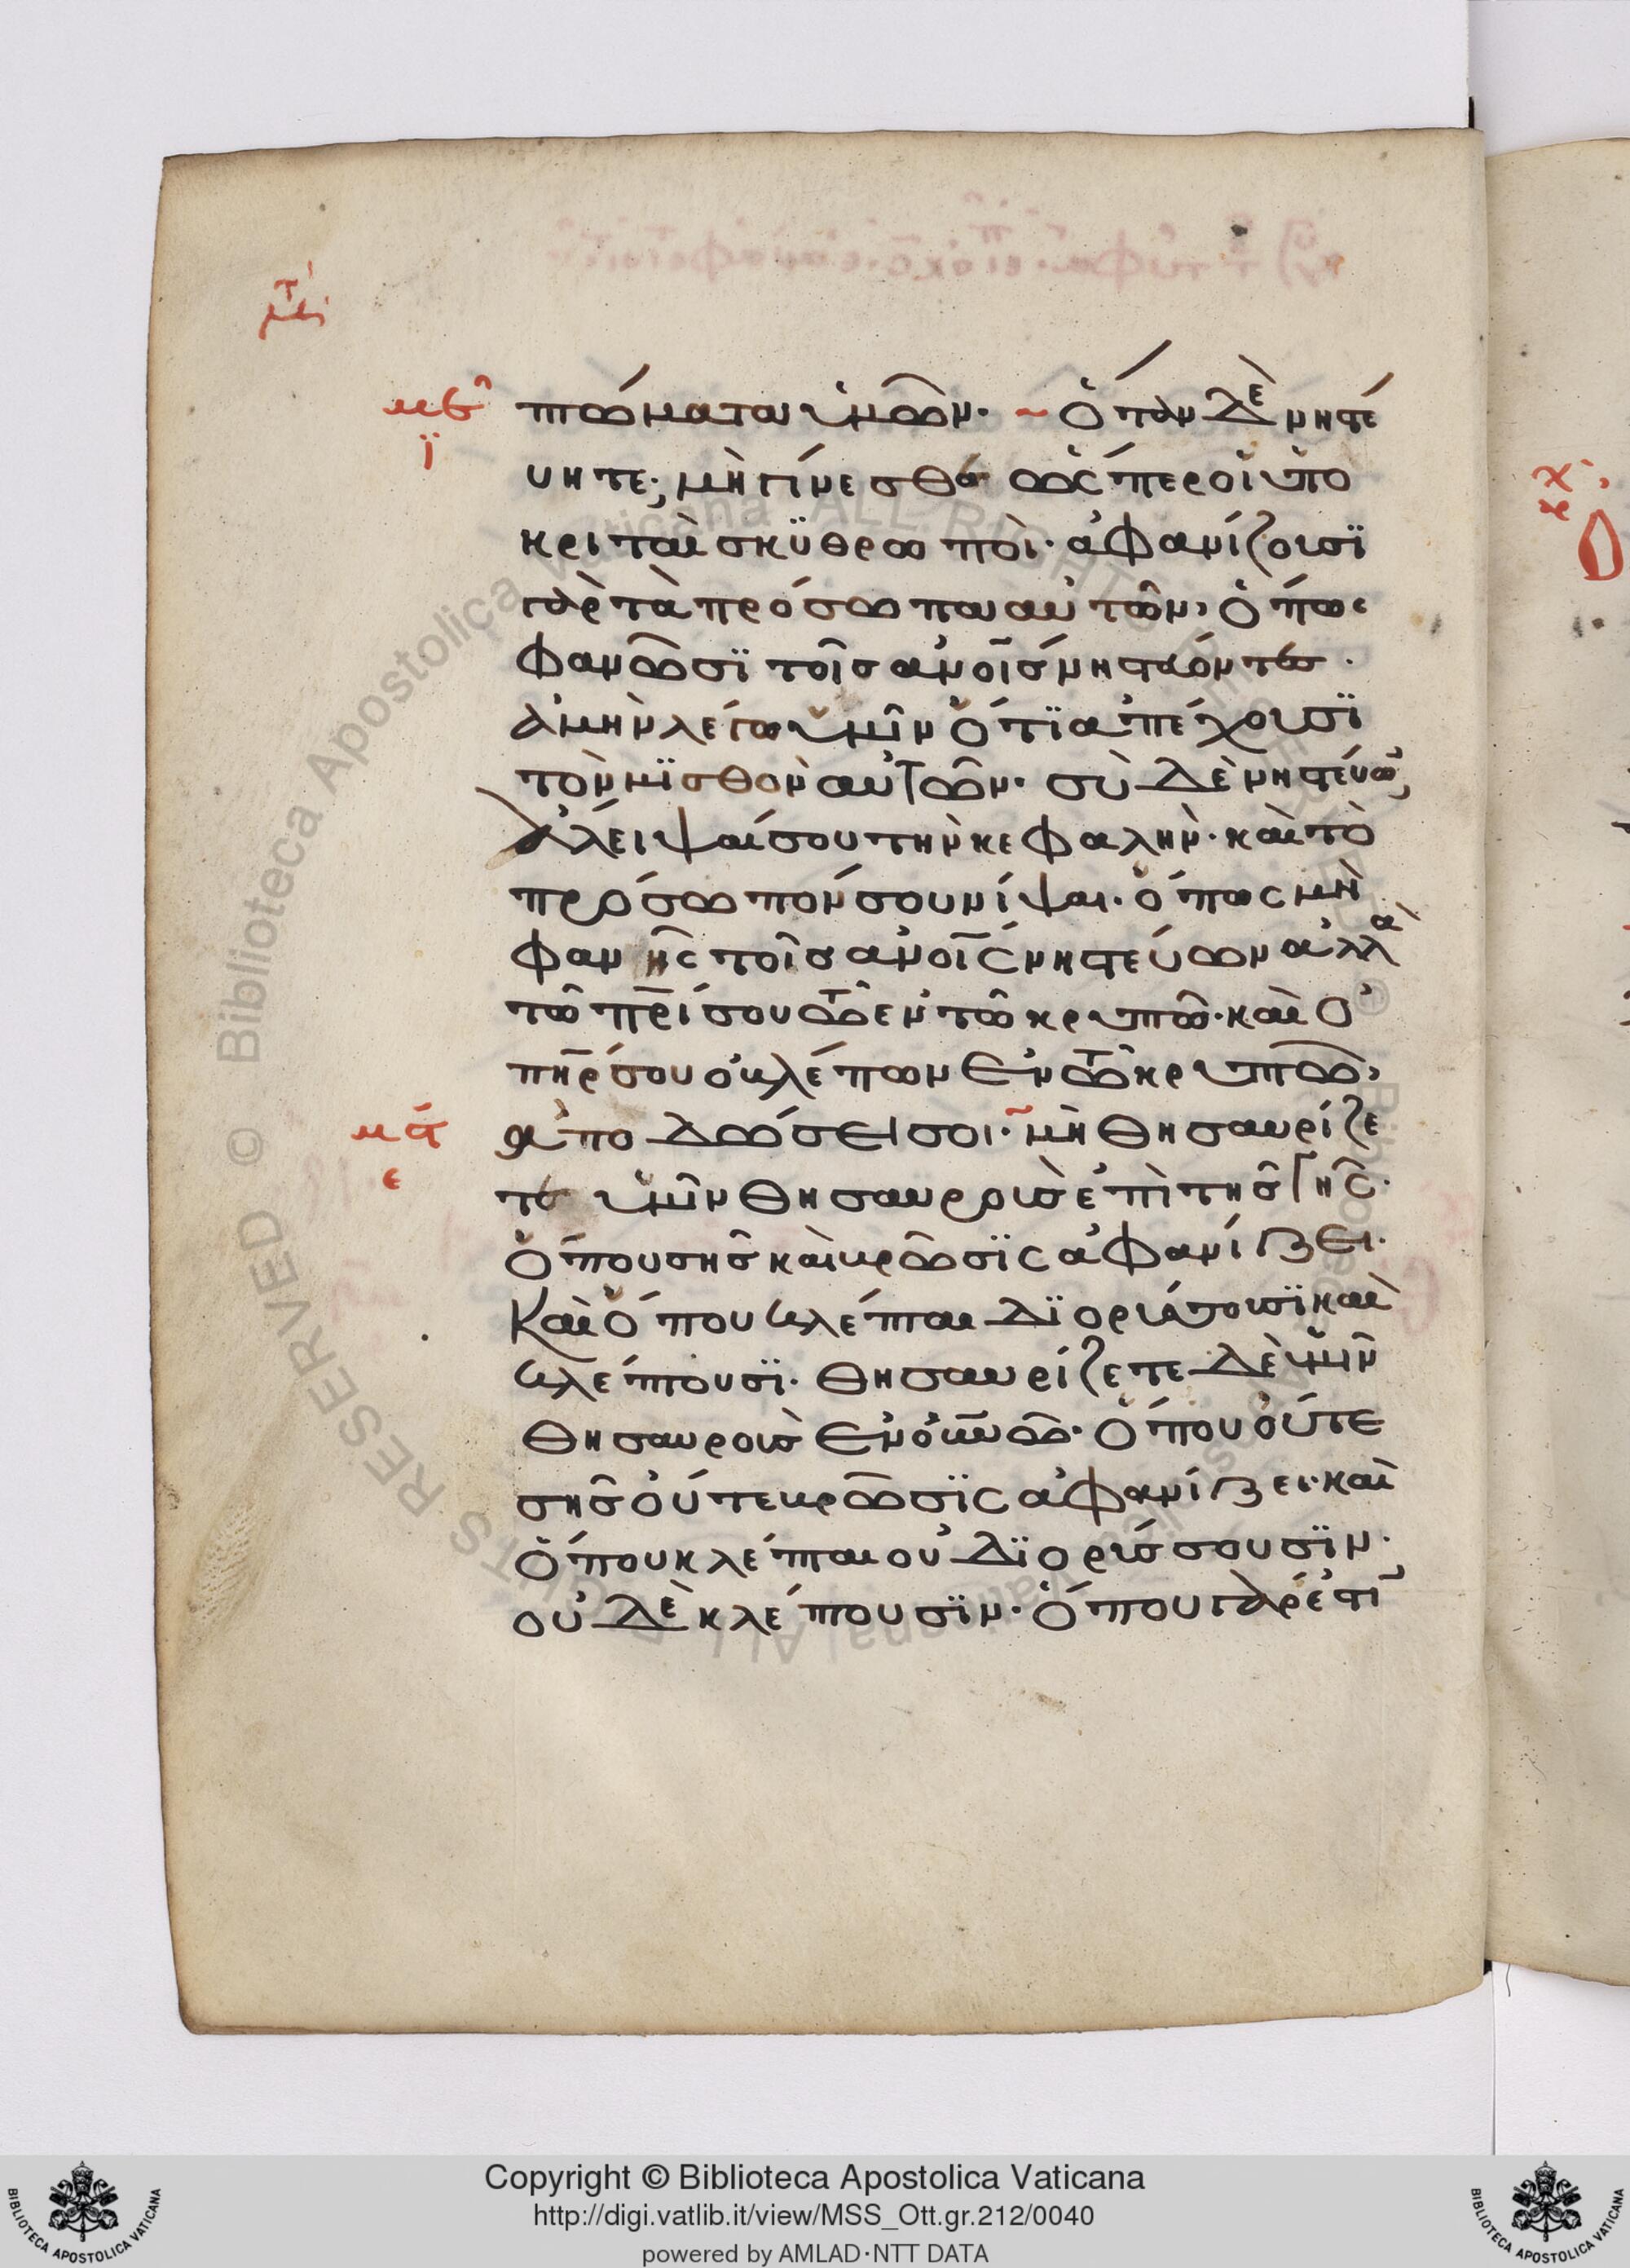 μβ
ϊ
πτώματα ὑμῶν· ~ Ὅταν δὲ νηστέ
υητε, μὴ γίνεσθαι ὥσπερ οἱ ὑπο
κριταὶ σκϋθρωποὶ· ἀφανίζουσϊ
γὰρ τὰ πρόσωπα αὐτῶν, ὅπως
φανῶσϊ τοῖς ἀνοῖς νηστεύοντες·
ἀμὴν λέγω ὑμῖν ὅτϊ ἀπέχουσϊ
τὸν μϊσθὸν αὐτῶν· σὺ δὲ νηστέυων,
ἄλειψαί σου τὴν κεφαλὴν· καὶ τὸ
πρόσωπόν σου νίψαι· ὅπως μὴ
φανῆς τοῖς ἀνοῖς νηστεύων ἀλλὰ
τῶ πρί σου τῶ ἐν τῶ κρυπτῶ· καὶ ὁ
πήρ σου ὁ βλέπων ἐν τῶ κρυπτῶ,
μδ
ε
ἀποδώσει σοι· μὴ θησαυρίζε
τε ὑμῖν θησαυροὺς ἐπὶ τῆς γῆς·
ὅπου σὴς καὶ βρῶσϊς ἀφανίζει·
Καὶ ὅπου κλέπται δϊορύττουσϊ καὶ
κλέπτουσϊ· θησαυρίζετε δὲ ὑμῖν
θησαυροὺς ἐν οὐνῶ· ὅπου οὔτε
σὴς οὔτε βρῶσϊς ἀφανίζει· καὶ
ὅπου κλέπται οὐ δϊορύσσουσϊν·
οὐδὲ κλέπτουσϊν· ὅπου γάρ ἐστϊ
Copyright © Biblioteca Apostolica Vaticana
http://digi.vatlib.it/view/MSS_Ott.gr.212/0040
powered by AMLAD·NTT DATA
BIBLIOTECA APOSTOLICA VATICANA
BIBLIOTECA APOSTOLICA VATICANA